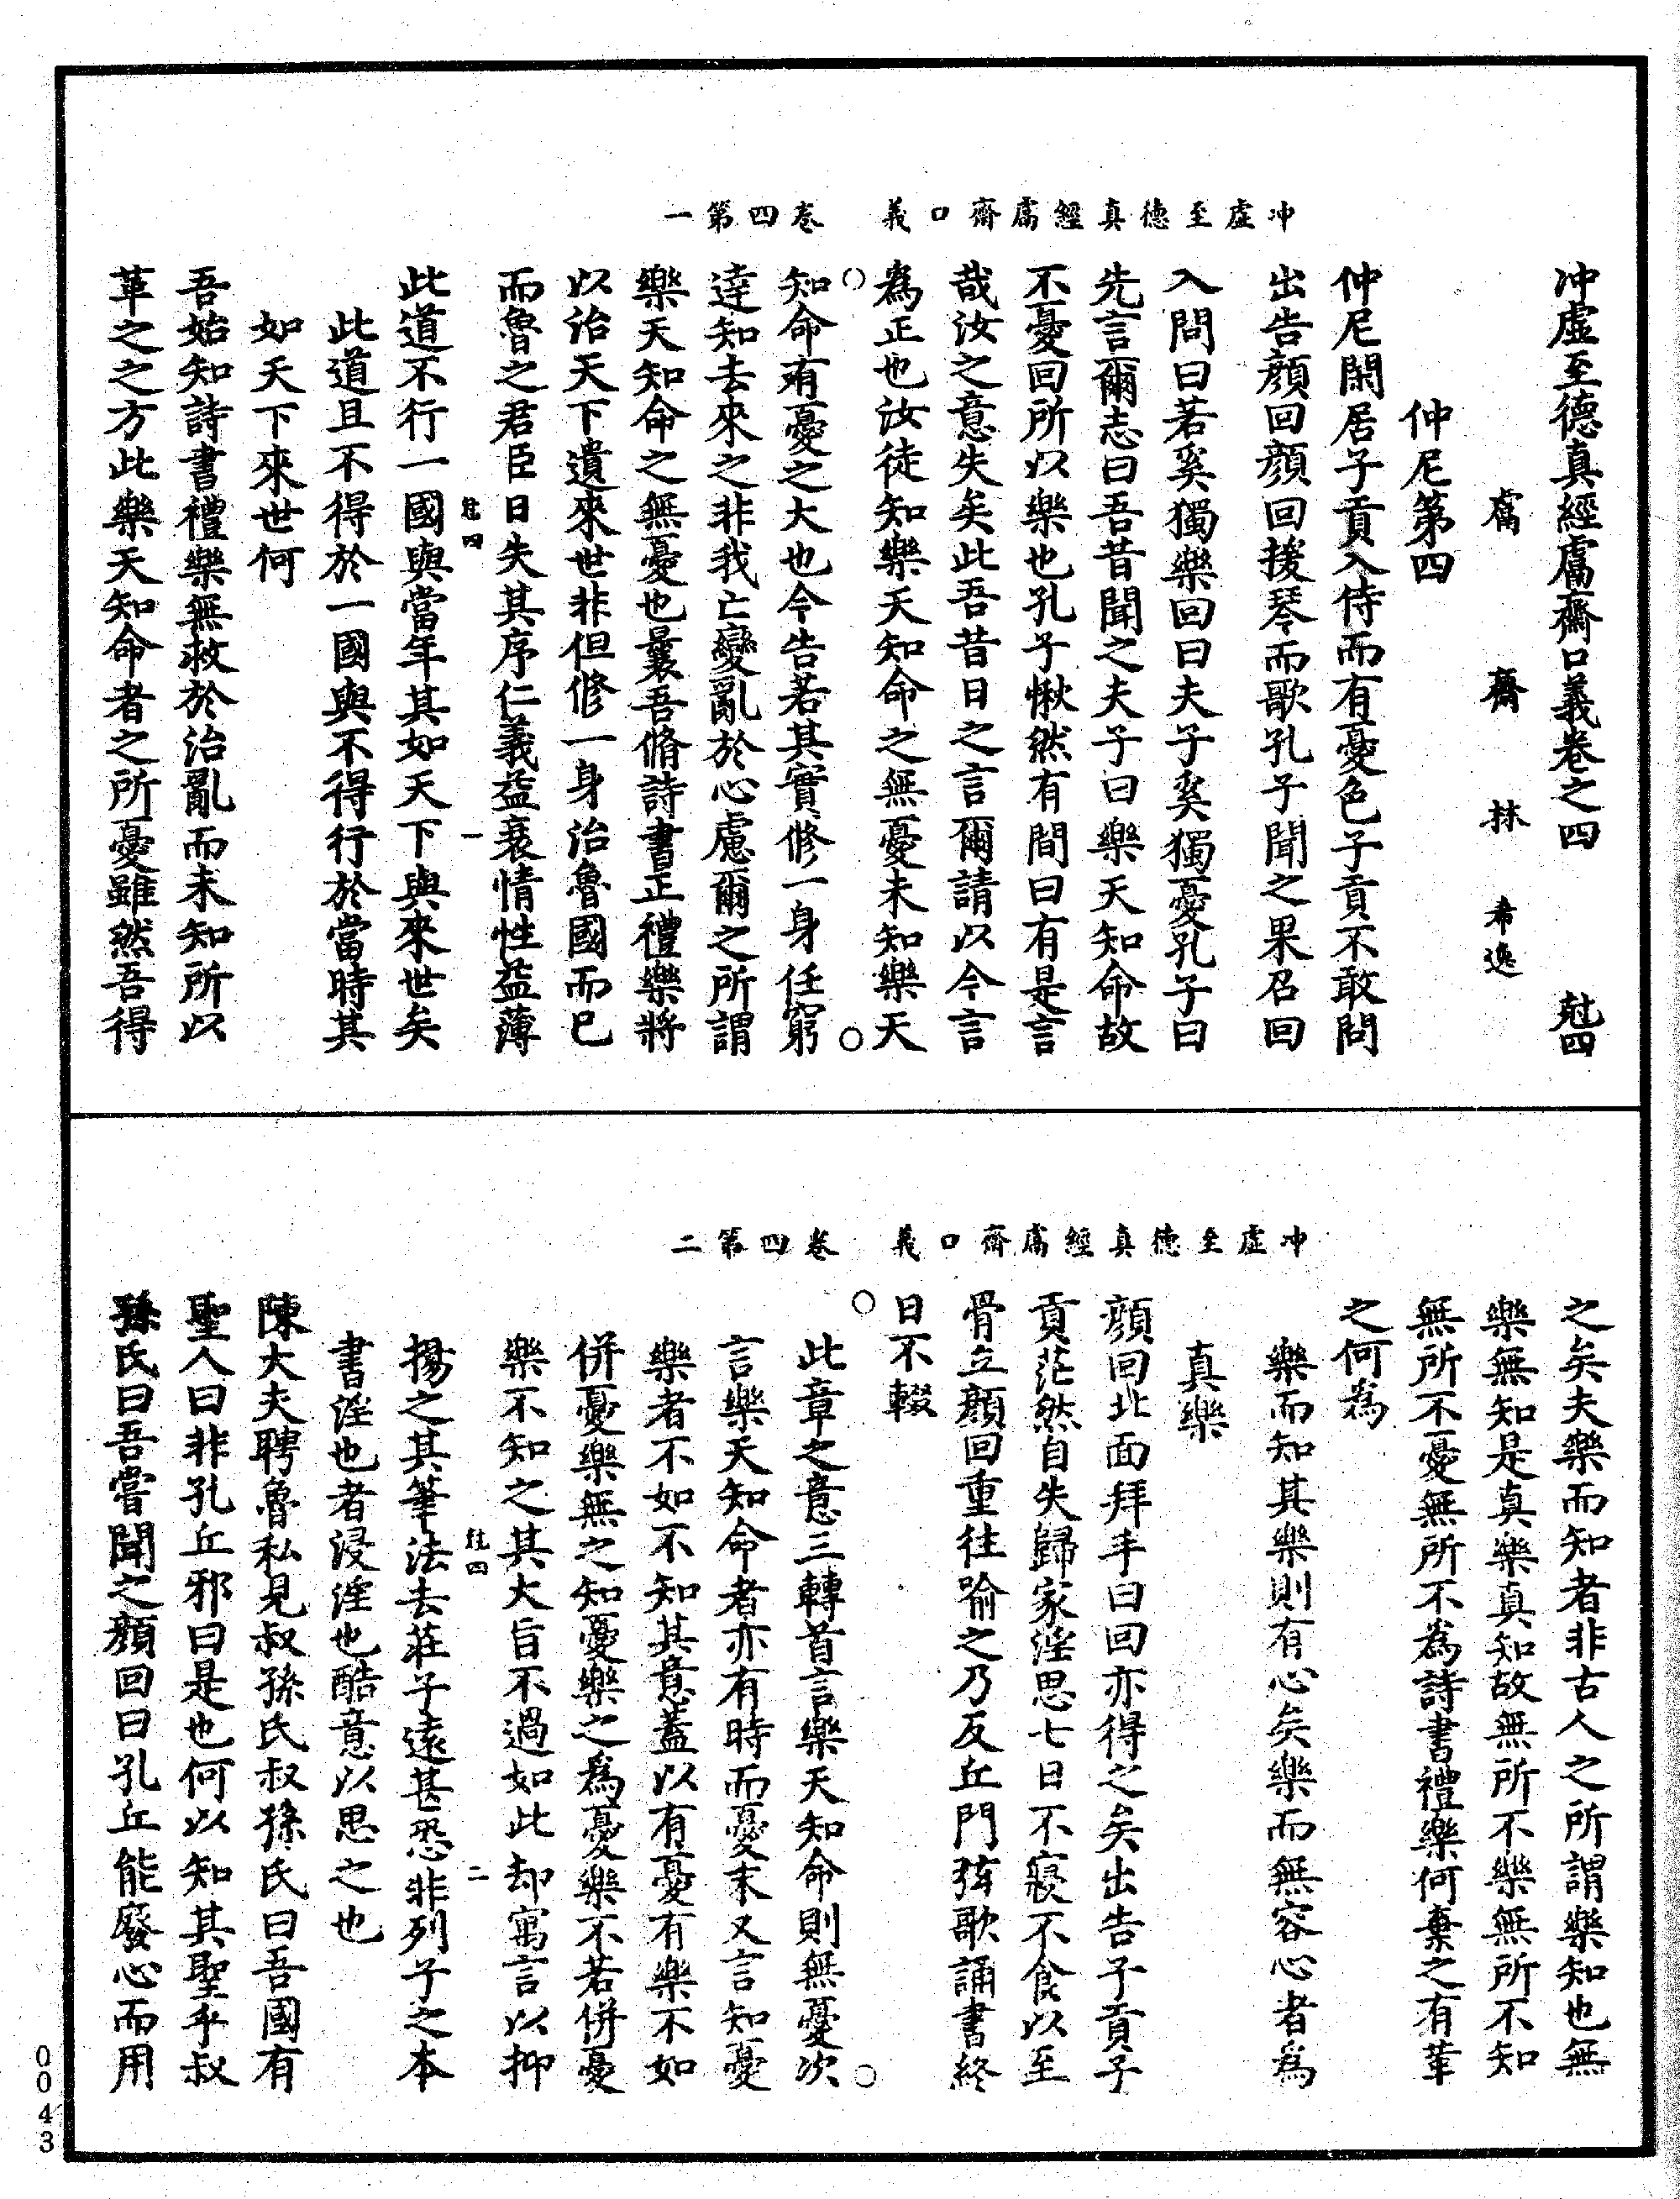 冲虛至德真經鬳齋口義卷之四 尅四
鬳齋林希逸
仲尼第四
仲尼閑居子貢入侍而有憂色子貢不敢問
出告顔回顔回援琴而歌孔子聞之果召回
入問曰若奚獨樂回曰夫子奚獨憂孔子曰
先言爾志曰吾昔聞之夫子曰樂天知命故
不憂回所以樂也孔子愀然有間曰有是言
哉汝之意失矣此吾昔日之言爾請以今言
為正也汝徒知樂天知命之無憂未知樂天
冲虛至德真經鬳齋口義 卷四第一
知命有憂之大也今告若其實修一身任窮
達知去來之非我亡變亂於心慮爾之所謂
樂天知命之無憂也曩吾脩詩書正禮樂將
以治天下遺來世非但修一身治魯國而已
而魯之君臣日失其序仁義益衰情性益薄
尅四 一
此道不行一國與當年其如天下與來世矣
此道且不得於一國與不得行於當時其
如天下來世何
吾始知詩書禮樂無救於治亂而未知所以
革之之方此樂天知命者之所憂雖然吾得
之矣夫樂而知者非古人之所謂樂知也無
樂無知是真樂真知故無所不樂無所不知
無所不憂無所不為詩書禮樂何棄之有革
之何為
樂而知其樂則有心矣樂而無容心者為
真樂
顔回北面拜手曰回亦得之矣出告子貢子
貢茫然自失歸家淫思七日不寢不食以至
骨立顔回重往喻之乃反丘門弦歌誦書終
日不輟
冲虛至德真經鬳齋口義 卷四第二
此章之意三轉首言樂天知命則無憂次
言樂天知命者亦有時而憂末又言知憂
樂者不如不知其意蓋以有憂有樂不如
併憂樂無之知憂樂之為憂樂不若併憂
樂不知之其大旨不過如此却寓言以抑
尅四 二
揚之其筆法去莊子遠甚恐非列子之本
書淫也者浸淫也酷意以思之也
陳大夫聘魯私見叔孫氏叔孫氏曰吾國有
聖人曰非孔丘邪曰是也何以知其聖乎叔
孫氏曰吾嘗聞之顔回曰孔丘能廢心而用
0043